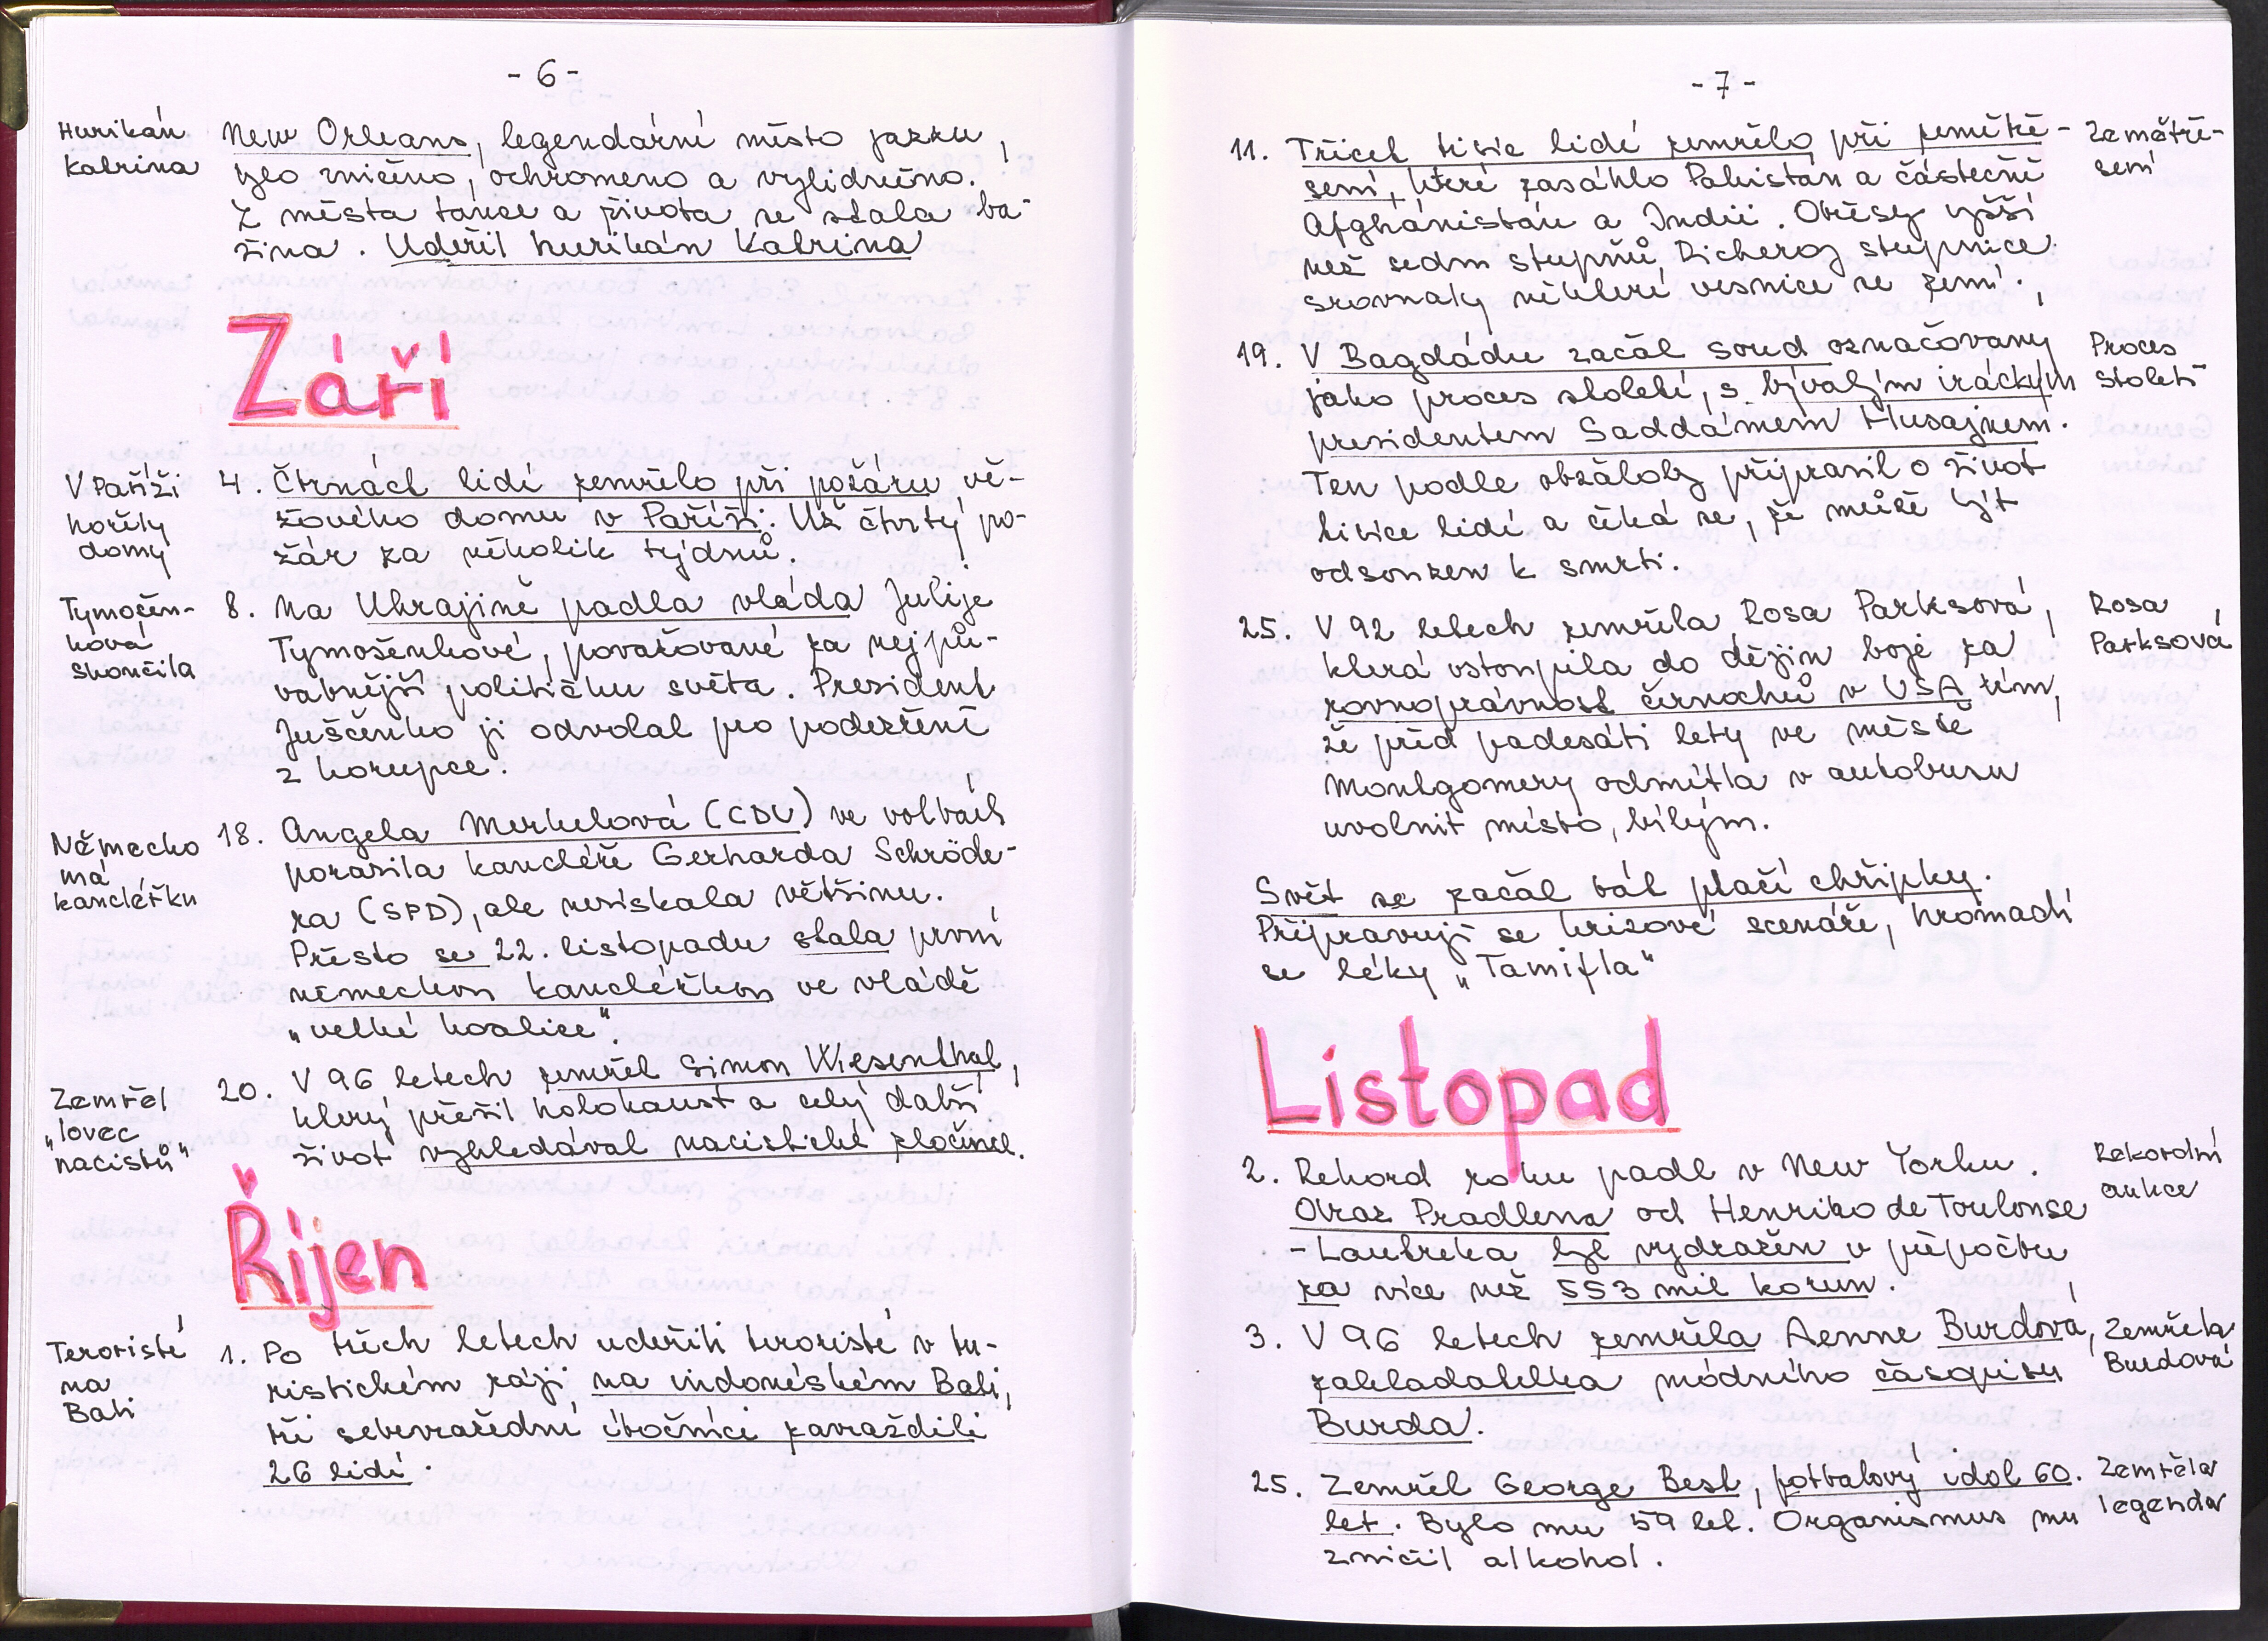 - 6 -
Hurikán
Katrina
New Orleans, legendární město jazzu,
bylo zničeno, ochromeno a vylidněno.
Z města tance a života se stala ba-
žina. Udeřil hurikán Katrina
Září
V Paříži
hořely
domy
4. Čtrnáct lidí zemřelo při požáru vě-
žového domu v Paříži. Už čtvrtý po-
žár za několik týdnů.
Tymošen-
ková
skončila
8. Na Ukrajině padla vláda Julije
Tymošenkové, považované za nejpů-
vabnější političku světa. President
Juščenko ji odvolal pro podezření
z korupce.
Německo
má
kancléřku
18. Angela Merkelová (CDU) ve volbách
porazila kancléře Gerharda Schröde-
ra (SPD), ale nezískala většinu.
Přesto se 22. listopadu stala první
německou kancléřkou ve vládě
„velké koalice“.
Zemřel
„lovec
nacistů“
20. V 96 letech zemřel Simon Wiesenthal,
který přežil holokaust a celý další
život vyhledával nacistické zločince.
Říjen
Teroristé
na
Bali
1. Po třech letech udeřili teroristé v tu-
ristickém ráji na indonéském Bali,
tři sebevražední útočníci zavraždili
26 lidí.
- 7 -
11. Třicet tisíc lidí zemřelo při zemětře-
sení, které zasáhlo Pakistan a částečně
Afghánistán a Indii. Otřesy vyšší
než sedm stupňů Richeroy stupnice
srovnaly některé vesnice se zemí.
Zemětře-
sení
19. V Bagdádu začal soud označovaný
jako proces století, s bývalým iráckým
presidentem Saddámem Husajnem.
Ten podle obžaloby připravil o život
tisíce lidí a čeká se, že může být
odsouzen k smrti.
Proces
století
25. V 92 letech zemřela Rosa Parksová,
která vstoupila do dějin boje za
rovnoprávnost černochů v USA tím,
že před padesáti lety ve městě
Montgomery odmítla v autobusu
uvolnit místo bílým.
Rosa
Parksová
Svět se začal bát ptačí chřipky.
Připravují se krizové scénáře, hromadí
se léky „Tamifla“
Listopad
2. Rekord roku padl v New Yorku.
Obraz Pradlena od Henriho de Toulouse
- Lautreka byl vydražen v přepočtu
za více než 553 mil korun.
Rekordní
aukce
3. V 96 letech zemřela Aenne Burdová,
zakladatelka módního časopisu
Burda.
Zemřela
Burdová
25. Zemřel George Best, fotbalový idol 60.
let. Bylo mu 59 let. Organismus mu
zničil alkohol.
Zemřela
legenda